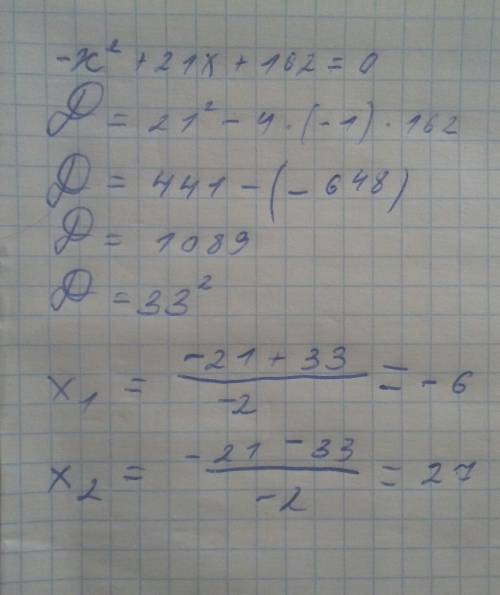 -x² + 21x + 162 = 0
D = 21² - 4 · (-1) · 162
D = 441 - (- 648)
D = 1089
D = 33²
x₁ = (-21 + 33)/(-2) = - 6
x₂ = (-21 - 33)/(-2) = 27